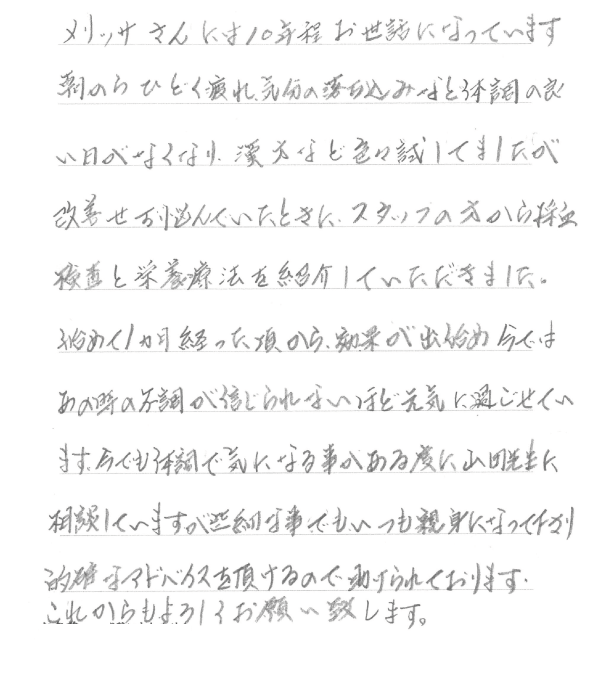 メリッサさんには10年程お世話になっています
朝からひどく疲れ、気分の落ち込みなど体調の良
い日がなくなり、漢方など色々試してましたが
改善せず悩んでいたときに、スタッフの方から採血
検査と栄養療法を紹介していただきました。
始めて1カ月経った頃から、効果が出始め今では
あの時の不調が信じられないほど元気に過ごせてい
ます。今でも体調で気になる事がある度に山田先生に
相談していますが些細な事でもいつも親身になって下さり
的確なアドバイスを頂けるので助けられております。
これからもよろしくお願い致します。